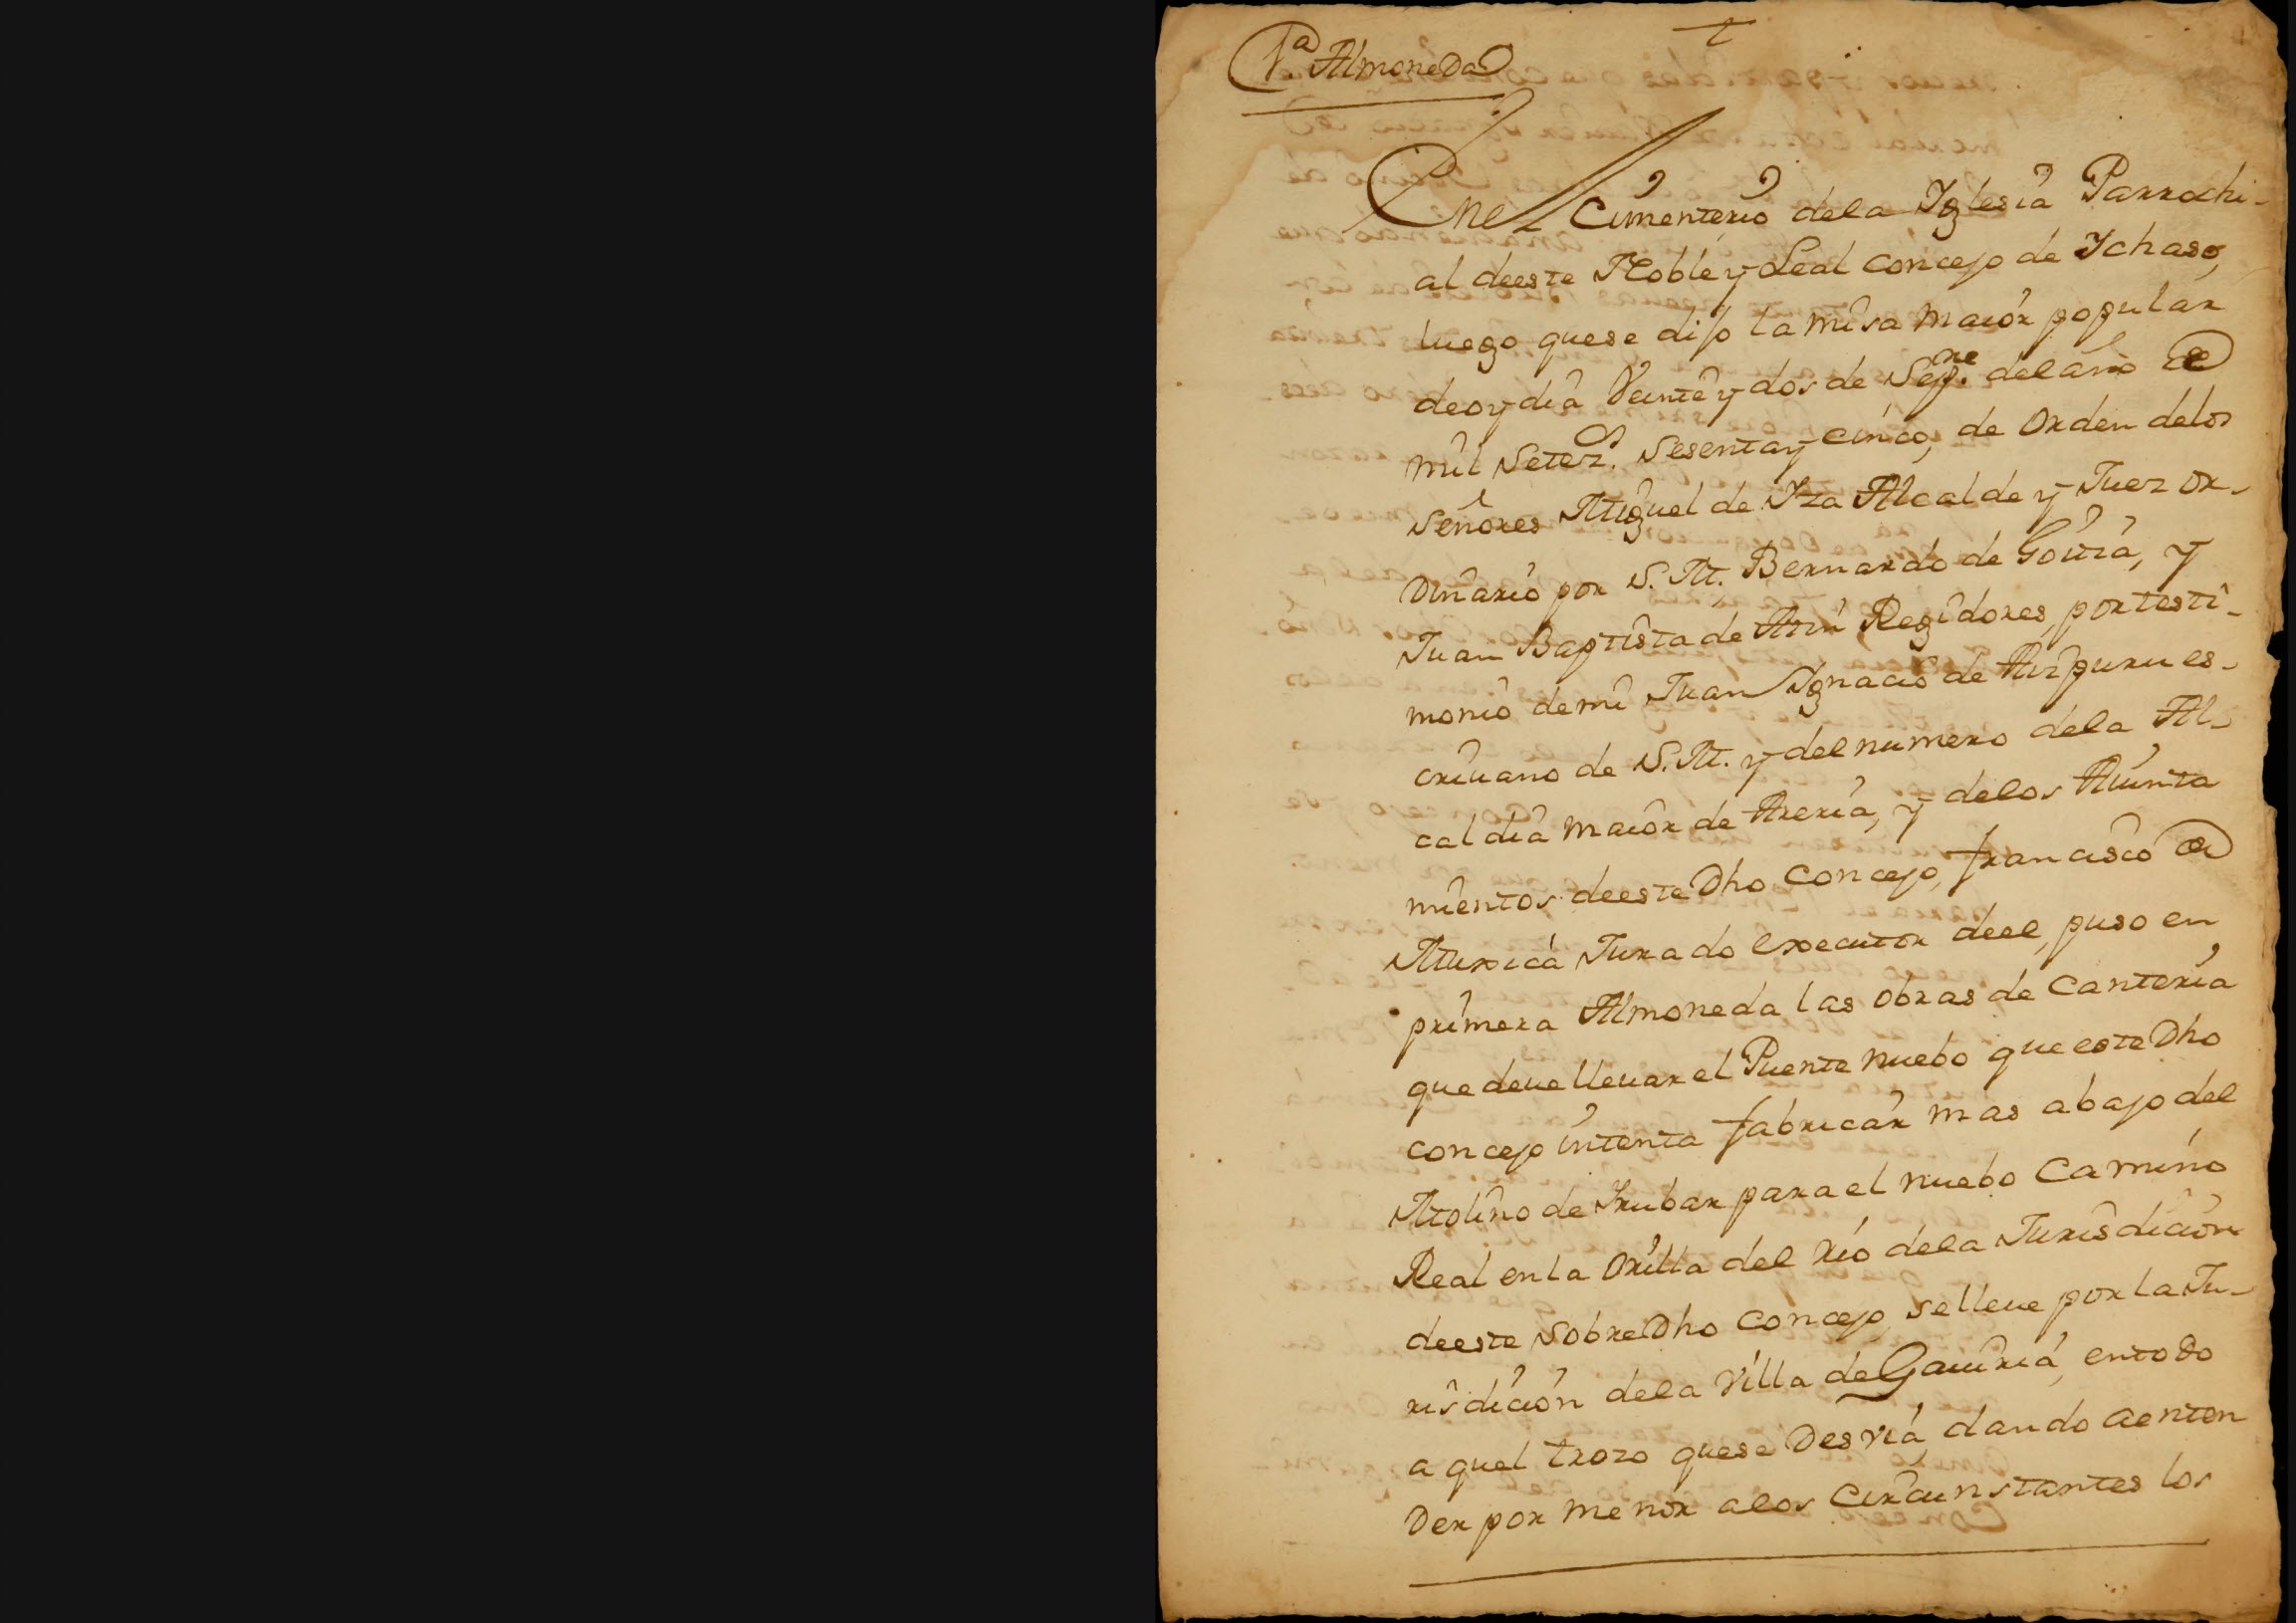 1.ª Almoneda
En el Cimenterio dela Yglesia Parrochi-
al deeste Noble y Leal concejo de Ychaso,
luego quese dijo la misa maior popular
deoy dia Veinte y dos de Sepre. del año de
mil Setezs. Sesenta y cinco, de Orden delos
Señores Miguel de Yza Alcalde y Juez or-
Dinario por S. M. Bernardo de Goiria, y
Juan Baptista de Regidores, por testi-
monio demi Juan Ygnacio de Aizpuru es-
criuano de S. M. y del numero dela Al-
caldia maior de Areria, y delos Aiunta
mientos deeste Dho concejo, francisco de
Muxica Jurado executor deel, puso en
primera Almoneda las obras de Canteria
que deue lleuar el Puente nuebo que este Dho
concejo intenta fabricar mas abajo del
Molino de Yrubar para el nuebo Camino
Real en la Orilla del rio dela Jurisdicion
deeste SobreDho concejo, se lleue por la Ju-
risdicion dela Villa de Gauiria, en todo
a quel trozo quese Desvia, dando aenten
Der por menor alos Circunstantes los